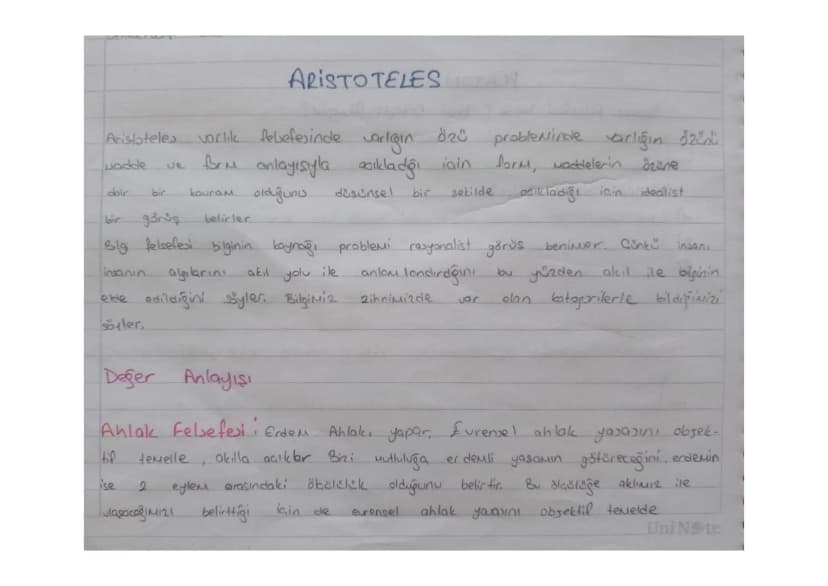 ARİSTOTELES
Aristoteles varlık felsefesinde varlığın özü probleminde varlığın özünü
madde ve form anlayışıyla açıkladğı için form, maddelerin özüne
dair bir kavram olduğunu düşünsel bir şekilde açıkladığı için idealist
bir görüş belirler
Bilgi felsefesi bilginin kaynağı problemi rasyonalist görüş benimser. Çünkü insan,
insanın algılarını akıl yolu ile anlamlandırdığını bu yüzden akıl ile bilginin
elde edildiğini söyler. Bilgimiz zihnimizde var olan kategorilerle bildiğimizi
söyler.
Değer Anlayışı
Ahlak Felsefesi : Erdem Ahlakı yapar. Evrensel ahlak yasasını objek-
tif temelle, akılla açıklar Bizi mutluluğa erdemli yaşamın götüreceğini, erdemin
ise 2 eylem arasındaki ölçülülük olduğunu belirtir. Bu ölçülüğe aklımız ile
ulaşacağımızı belirttiği için de evrensel ahlak yasasını objektif temelde
UniNote